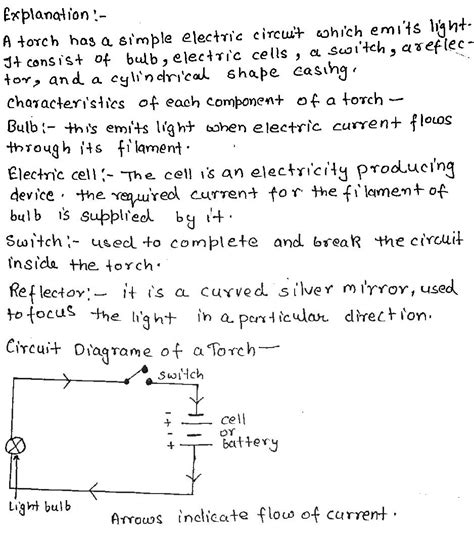 Explanation:-
A torch has a simple electric circuit which emits light.
It consist of bulb, electric cells, a switch, a reflec-
tor, and a cylindrical shape casing.
characteristics of each component of a torch —
Bulb:- this emits light when electric current flows
through its filament.
Electric cell:- The cell is an electricity producing
device. the required current for the filament of
bulb is supplied by it.
Switch:- used to complete and break the circuit
inside the torch.
Reflector:- it is a curved silver mirror, used
to focus the light in a particular direction.
Circuit Diagrame of a Torch —
switch
-
+
-
+
cell
or
battery
Light bulb
Arrows indicate flow of current.